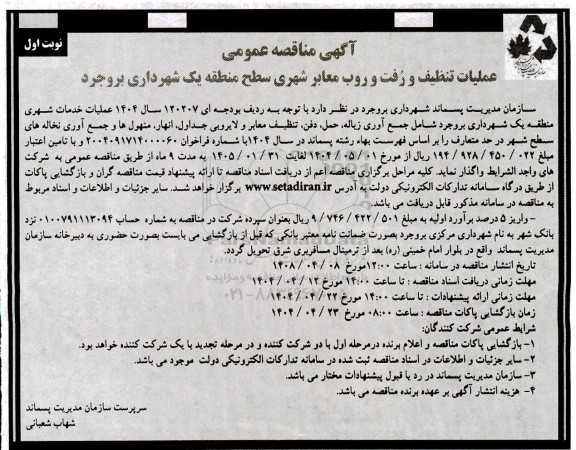 نوبت اول
آگهی مناقصه عمومی
عملیات تنظیف و رُفت و روب معابر شهری سطح منطقه یک شهرداری بروجرد
سازمان مدیریت پسماند شهرداری بروجرد در نظر دارد با توجه به ردیف بودجه ای ۱۲۰۲۰۷ سال ۱۴۰۴ عملیات خدمات شهری
منطقه یک شهرداری بروجرد شامل جمع آوری زباله، حمل، دفن، تنظیف معابر و لایروبی جداول، انهار، منهول ها و جمع آوری نخاله های
سطح شهر در حد متعارف را بر اساس فهرست بهاء رشته پسماند در سال ۱۴۰۴با شماره فراخوان ۲۰۰۴۰۹۱۷۱۴۰۰۰۰۶۰ و با تامین اعتبار
مبلغ ۰۲۲ / ۴۵۰ / ۹۲۸ / ۱۹۴ ریال از مورخ ۰۱ / ۰۵ / ۱۴۰۴ لغایت ۳۱ / ۰۱ / ۱۴۰۵ به مدت ۹ ماه از طریق مناقصه عمومی به شرکت
های واجد الشرایط واگذار نماید. کلیه مراحل برگزاری مناقصه اعم از دریافت اسناد مناقصه تا ارائه پیشنهاد قیمت مناقصه گران و بازگشایی پاکات
از طریق درگاه سامانه تدارکات الکترونیکی دولت به آدرس www.setadiran.ir برگزار خواهد شد. سایر جزئیات و اطلاعات و اسناد مربوط
به مناقصه در سامانه مذکور قابل دریافت می باشد.
- واریز ۵ درصد برآورد اولیه به مبلغ ۵۰۱ / ۴۲۲ / ۷۴۶ / ۹ ریال بعنوان سپرده شرکت در مناقصه به شماره حساب ۰۱۰۰۷۹۱۱۱۳۰۹۴ نزد
بانک شهر به نام شهرداری مرکزی بروجرد بصورت ضمانت نامه معتبر بانکی که قبل از بازگشایی می بایست بصورت حضوری به دبیرخانه سازمان
مدیریت پسماند واقع در بلوار امام خمینی (ره) بعد از ترمینال مسافربری شرق تحویل گردد.
تاریخ انتشار مناقصه در سامانه : ساعت ۱۲:۰۰مورخ ۰۸ / ۰۴ / ۱۴۰۸
مهلت زمانی دریافت اسناد مناقصه : تا ساعت ۱۴:۰۰ مورخ ۱۲ / ۰۴ / ۱۴۰۴
مهلت زمانی ارائه پیشنهادات : تا ساعت ۱۴:۰۰ مورخ ۲۲ / ۰۴ / ۱۴۰۴
زمان بازگشایی پاکات مناقصه : ساعت ۰۸:۰۰ مورخ ۲۳ / ۰۴ / ۱۴۰۴
شرایط عمومی شرکت کنندگان:
۱- بازگشایی پاکات مناقصه و اعلام برنده درمرحله اول با دو شرکت کننده و در مرحله تجدید با یک شرکت کننده خواهد بود.
۲- سایر جزئیات و اطلاعات در اسناد مناقصه ثبت شده در سامانه تدارکات الکترونیکی دولت موجود می باشد.
۳- سازمان مدیریت پسماند در رد یا قبول پیشنهادات مختار می باشد.
۴- هزینه انتشار آگهی بر عهده برنده مناقصه می باشد.
سرپرست سازمان مدیریت پسماند
شهاب شعبانی